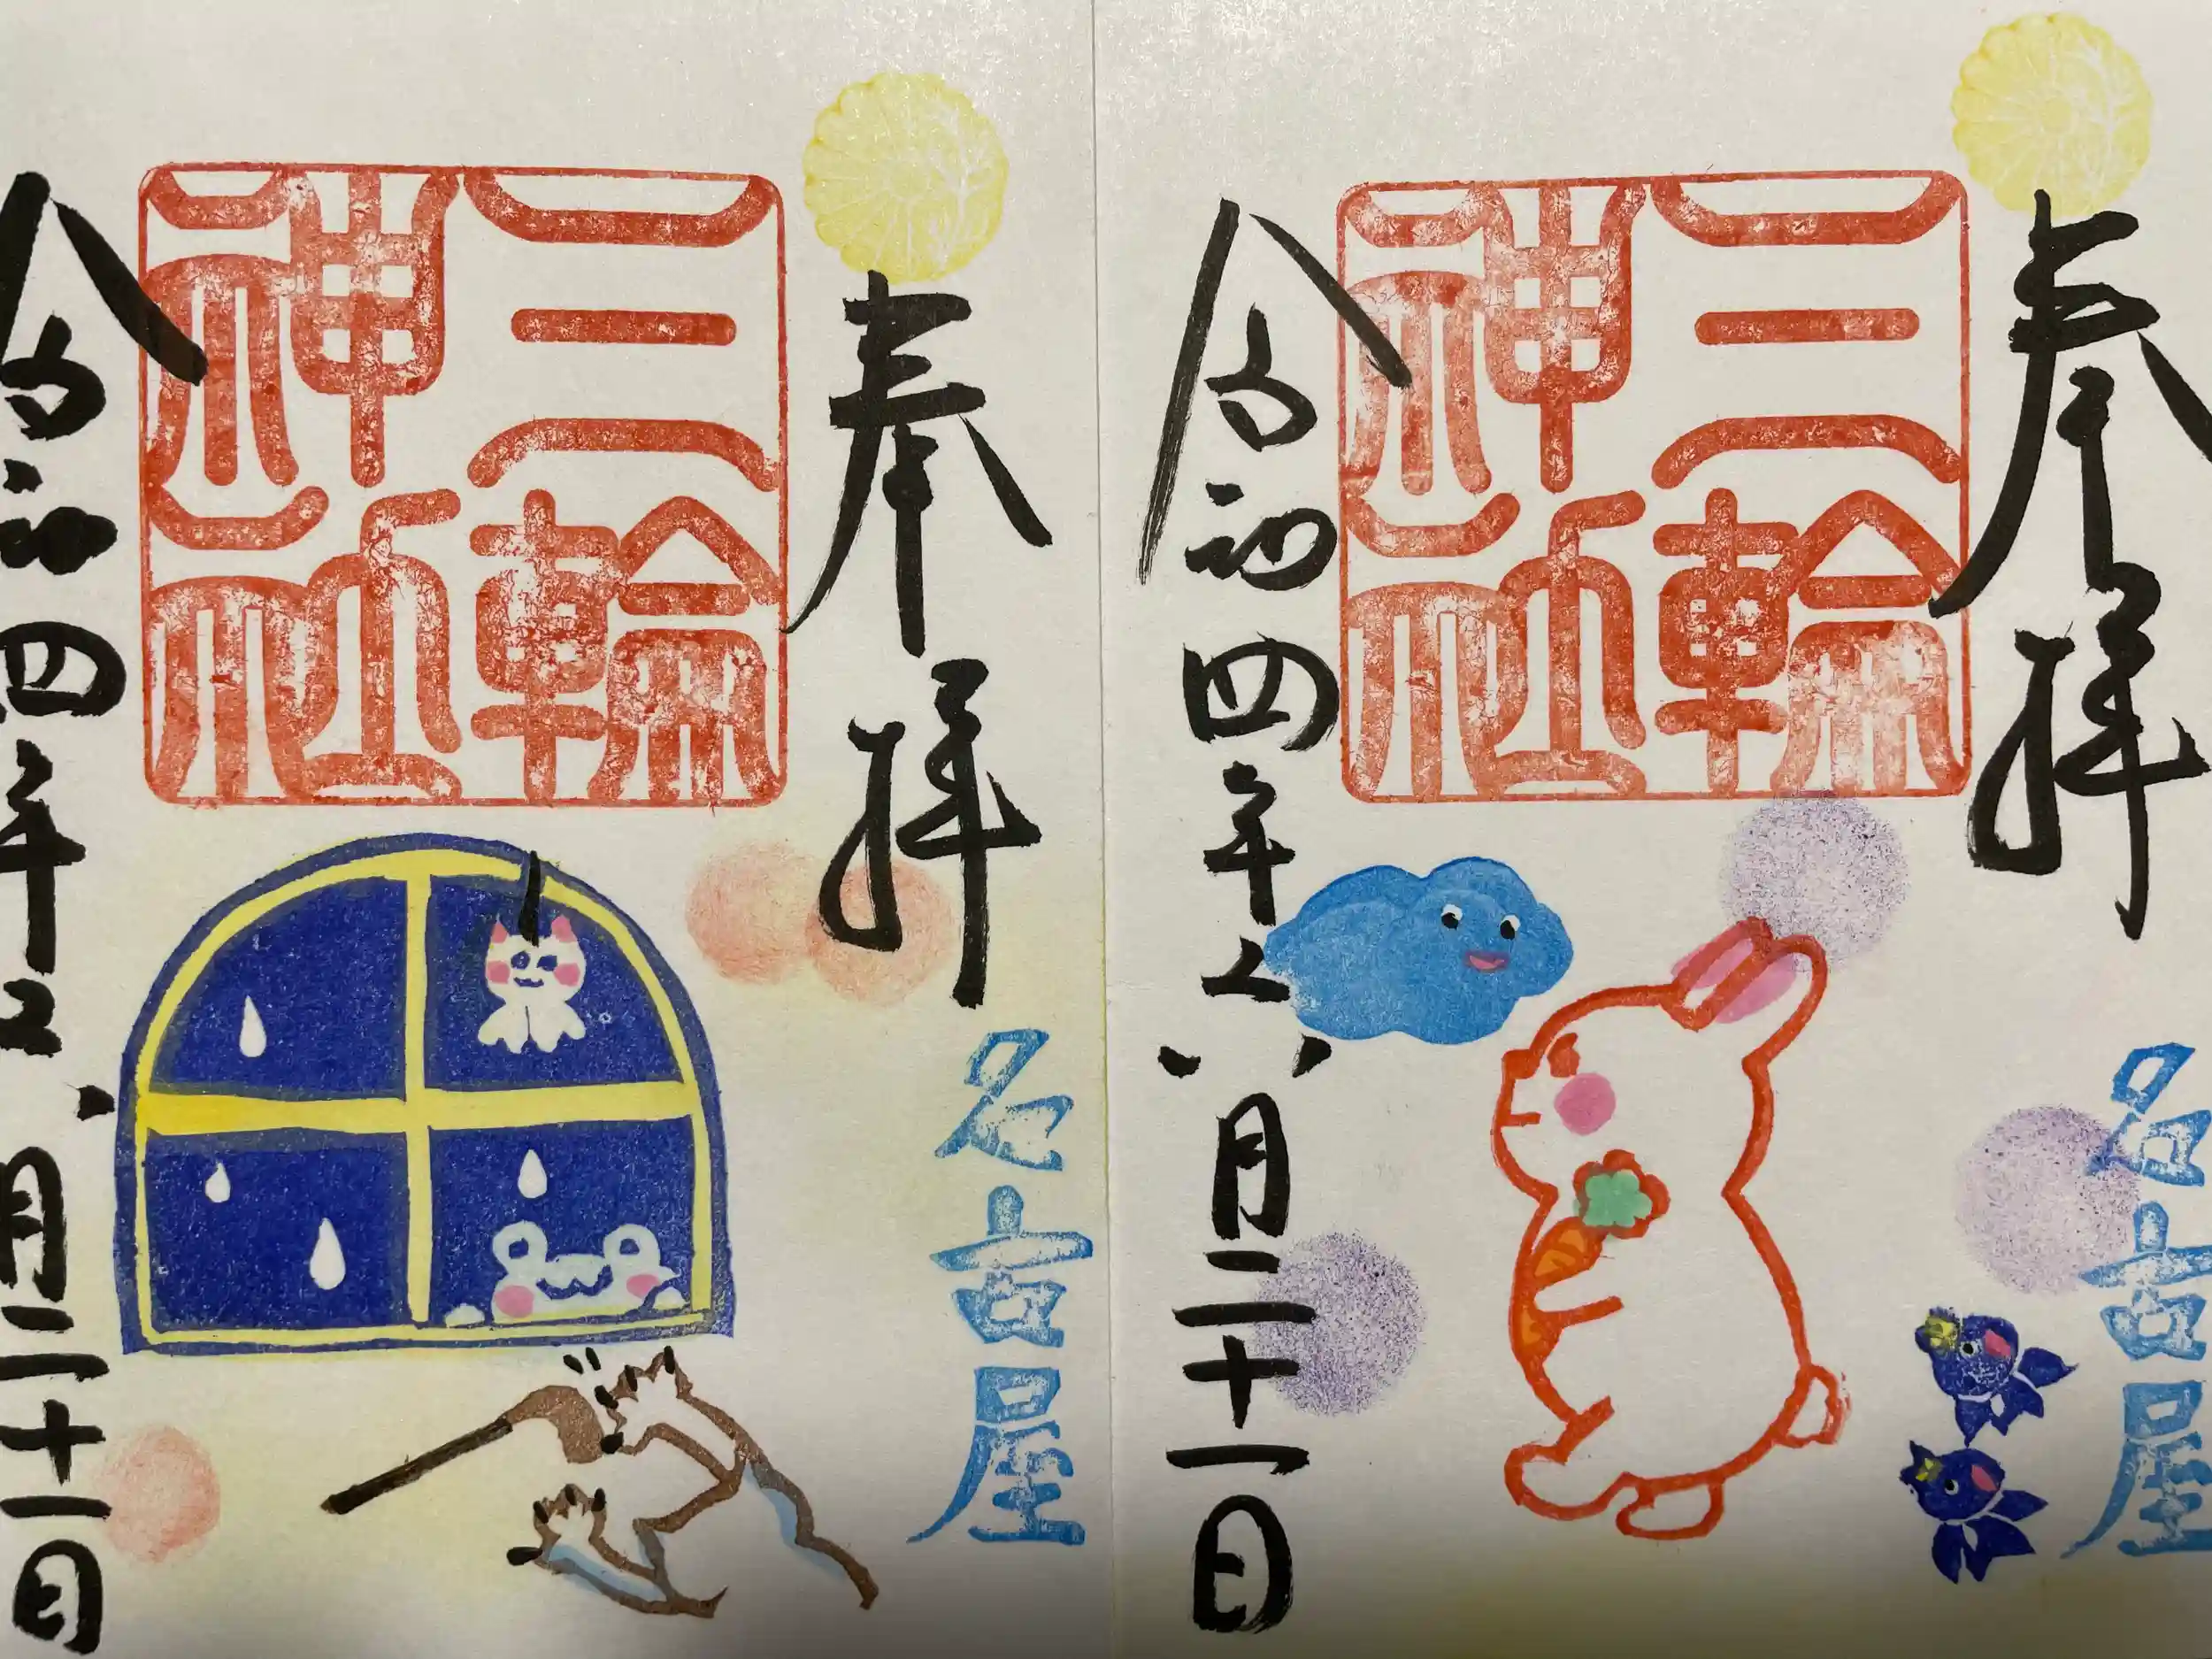 奉拝
名古屋
三輪
神社
令和四年六月二十一日
奉拝
名古屋
三輪
神社
令和四年六月二十一日